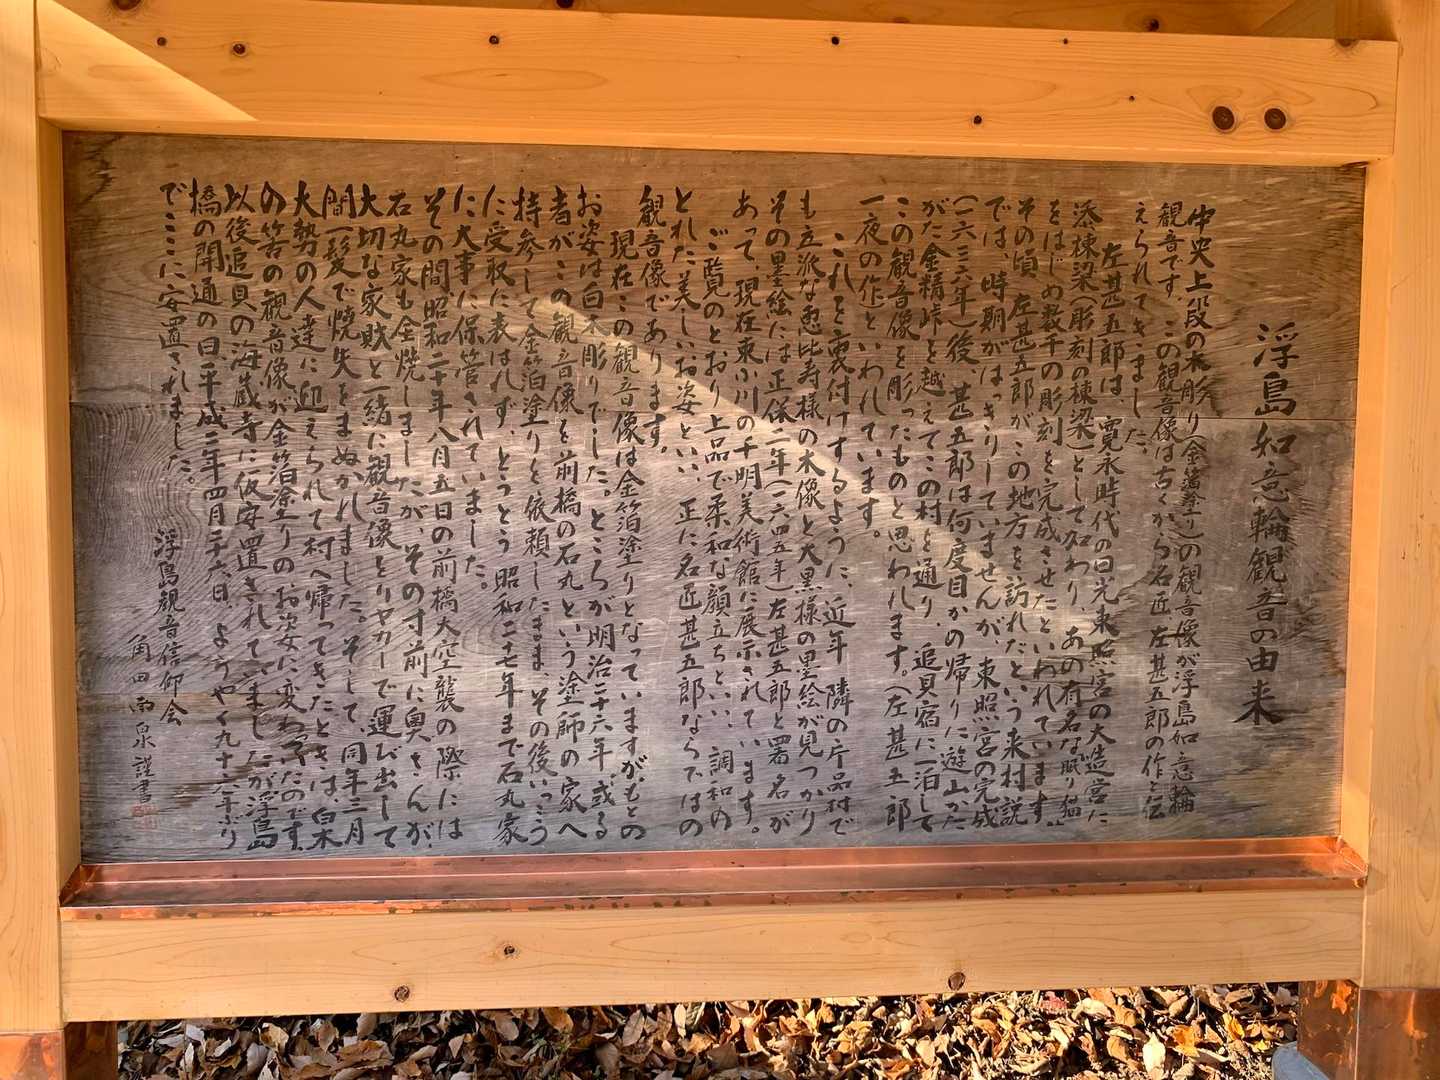 浮島如意輪観音の由来
中央上段の木彫り(金箔塗り)の観音像が浮島如意輪
観音です。この観音像は古くから名匠左甚五郎の作と伝
えられてきました。
左甚五郎は、寛永時代の日光東照宮の大造営に
添棟梁(彫刻の棟梁)として加わり、あの有名な眠り猫
をはじめ数千の彫刻を完成させたといわれています。
その頃、左甚五郎がこの地方を訪れたという来村説
では、時期がはっきりしていませんが、東照宮の完成
(一六三六年)後、甚五郎は何度目かの帰りに遊山かた
がた金精峠を越えてこの村を通り、追貝宿に一泊して
この観音像を彫ったものと思われます。(左甚五郎
一夜の作といわれています。
これを裏付けするように、近年、隣の片品村で
も立派な恵比寿様の木像と大黒様の墨絵が見つかり
その墨絵には正保二年(一六四五年)左甚五郎と署名が
あって、現在東小川の千明美術館に展示されています。
ご覧のとおり上品で柔和な顔立ちといい、調和の
とれた美しいお姿といい、正に名匠甚五郎ならではの
観音像であります。
現在この観音像は金箔塗りとなっていますが、もとの
お姿は白木彫りでした。ところが明治二十六年、或る
者がこの観音像を前橋の石丸という塗師の家へ
持参して金箔塗りを依頼したまま、その後いっこう
に受取に表はれず、とうとう昭和二十七年まで石丸家
に大事に保管されていました。
その間昭和二十年八月五日の前橋大空襲の際には
石丸家も全焼しましたが、その寸前に奥さんが、
大切な家財と一緒に観音像をリヤカーで運び出して
間一髪で焼失をまぬかれました。そして、同年三月
大勢の人達に迎えられて村へ帰ってきたときは、白木
の筈の観音像が金箔塗りのお姿に変わっていたのです。
以後追貝の海蔵寺に仮安置されていましたが浮島
橋の開通の日平成二年四月二十六日、ようやく九十六年ぶり
でここに安置されました。
浮島観音信仰会
角田雨泉謹書